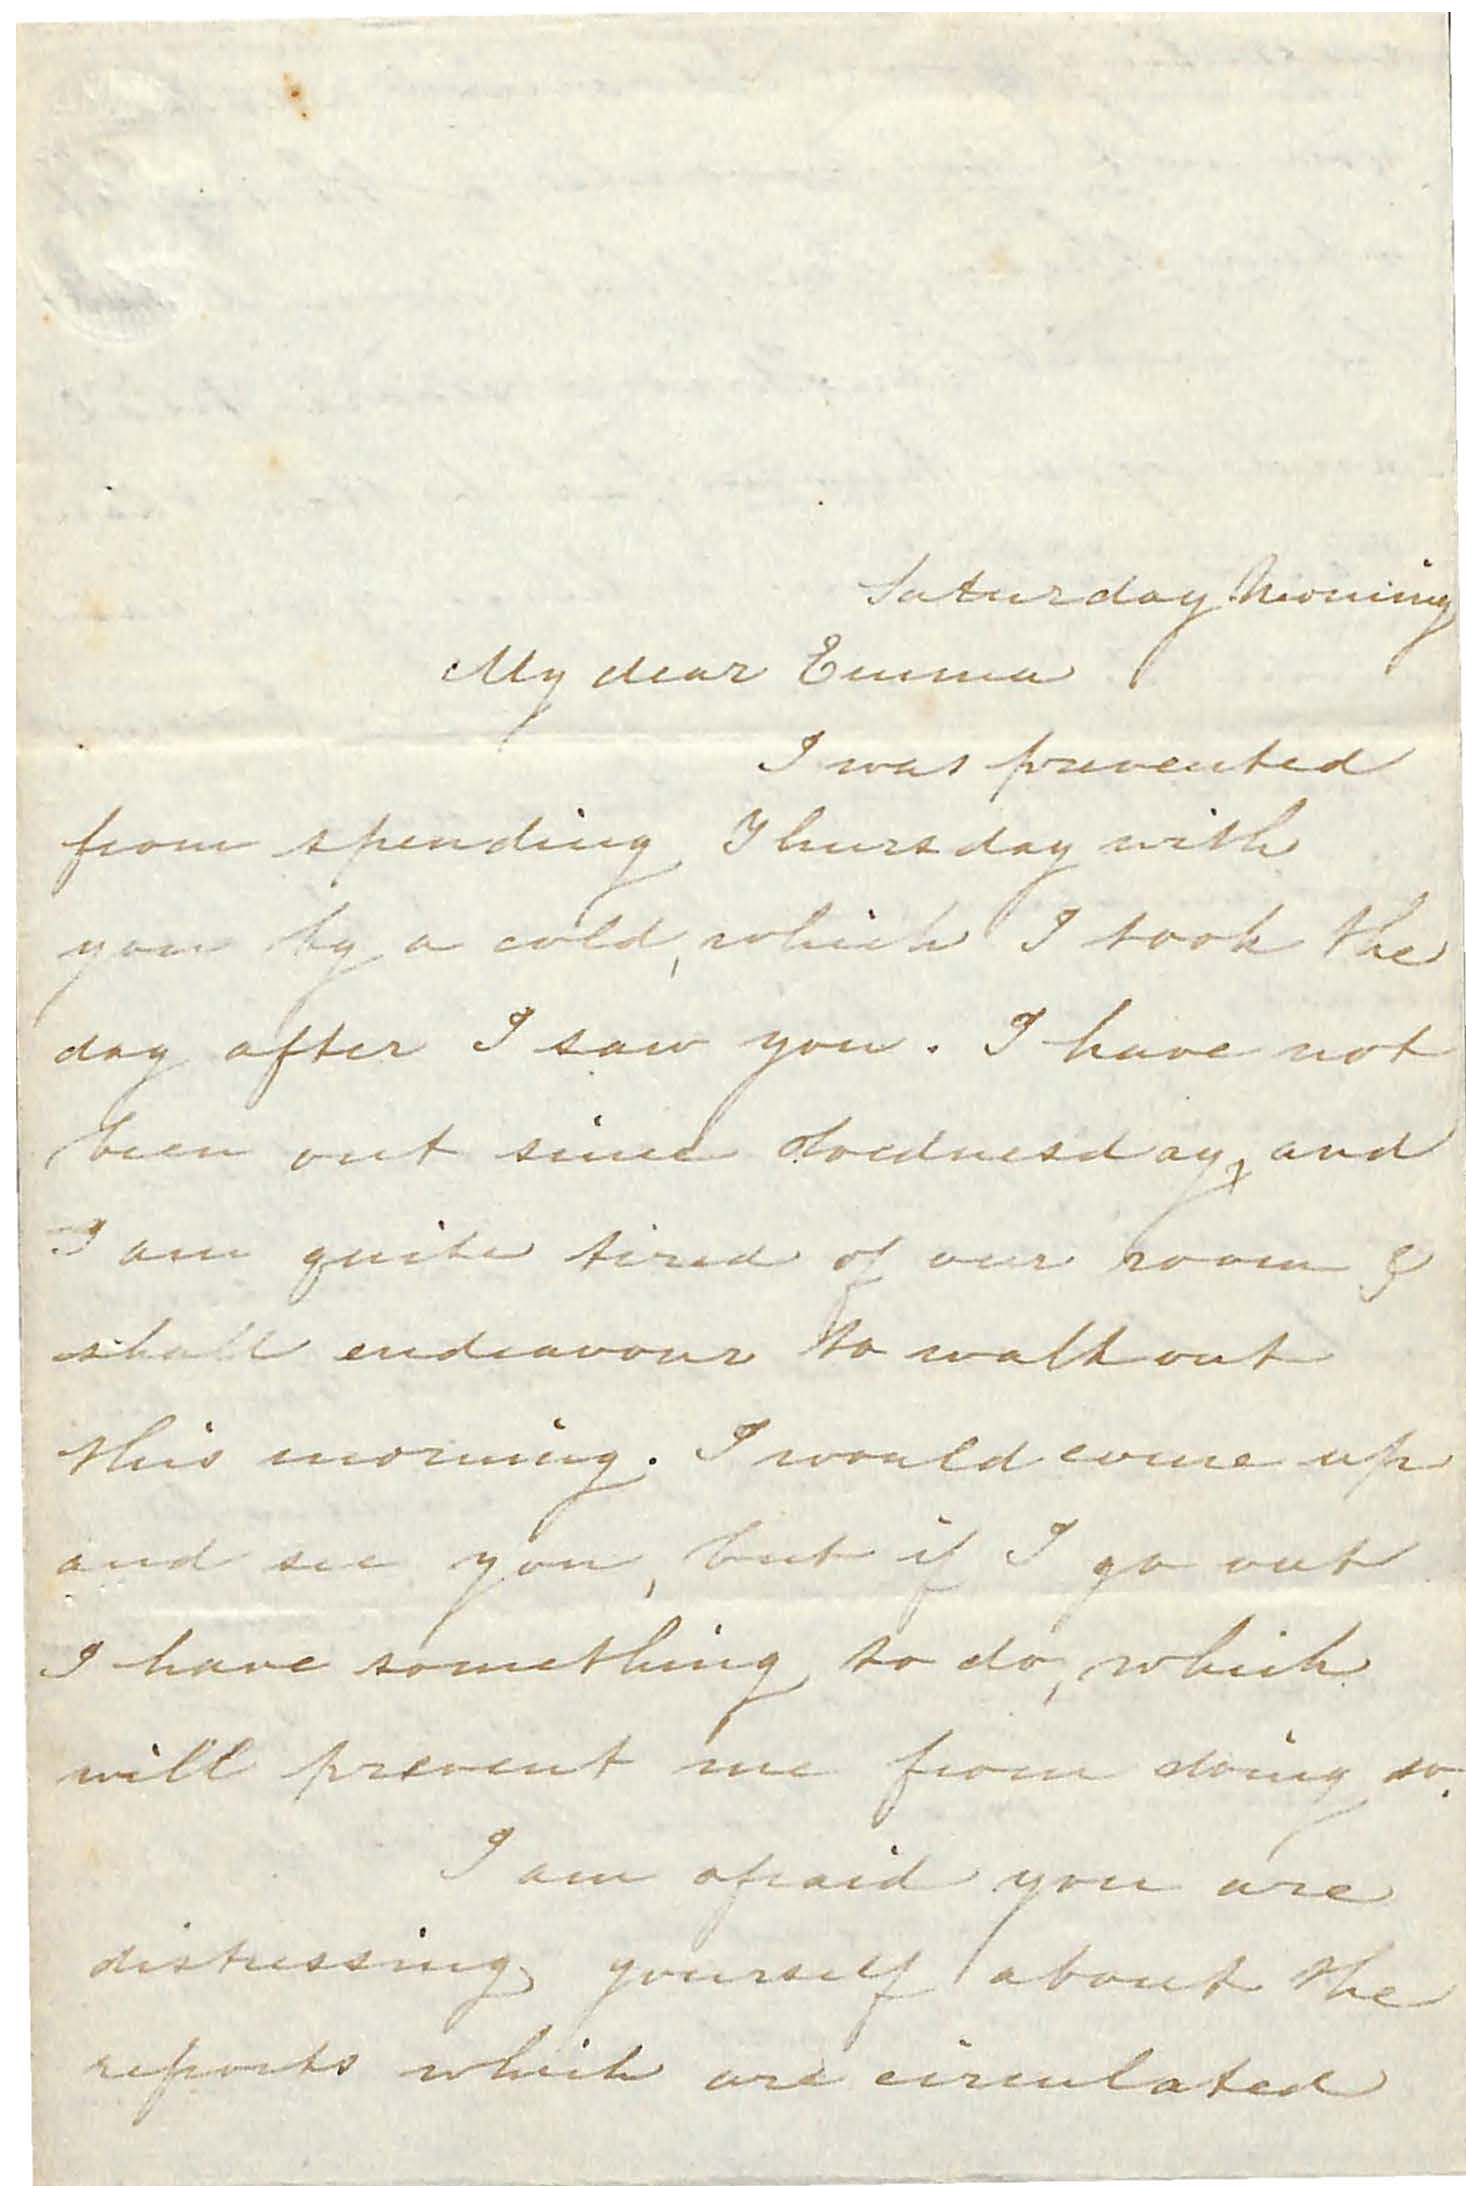 Saturday Morning
My dear Emma
I was prevented
from spending Thursday with
you by a cold, which I took the
day after I saw you. I have not
been out since Wednesday, and
I am quite tired of our room &
shall endeavour to walk out
this morning. I would come up
and see you, but if I go out
I have something to do, which
will prevent me from doing so.
I am afraid you are
distressing yourself about the
reports which are circulated